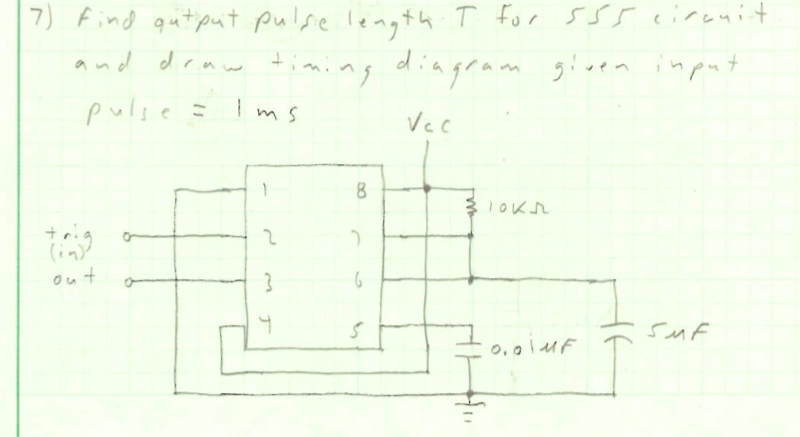 7) Find output pulse length T for 555 circuit
and draw timing diagram given input
pulse = 1ms
Vcc
1 8
10KΩ
trig 2 7
(in)
out 3 6
4 5
0.01MF
5MF